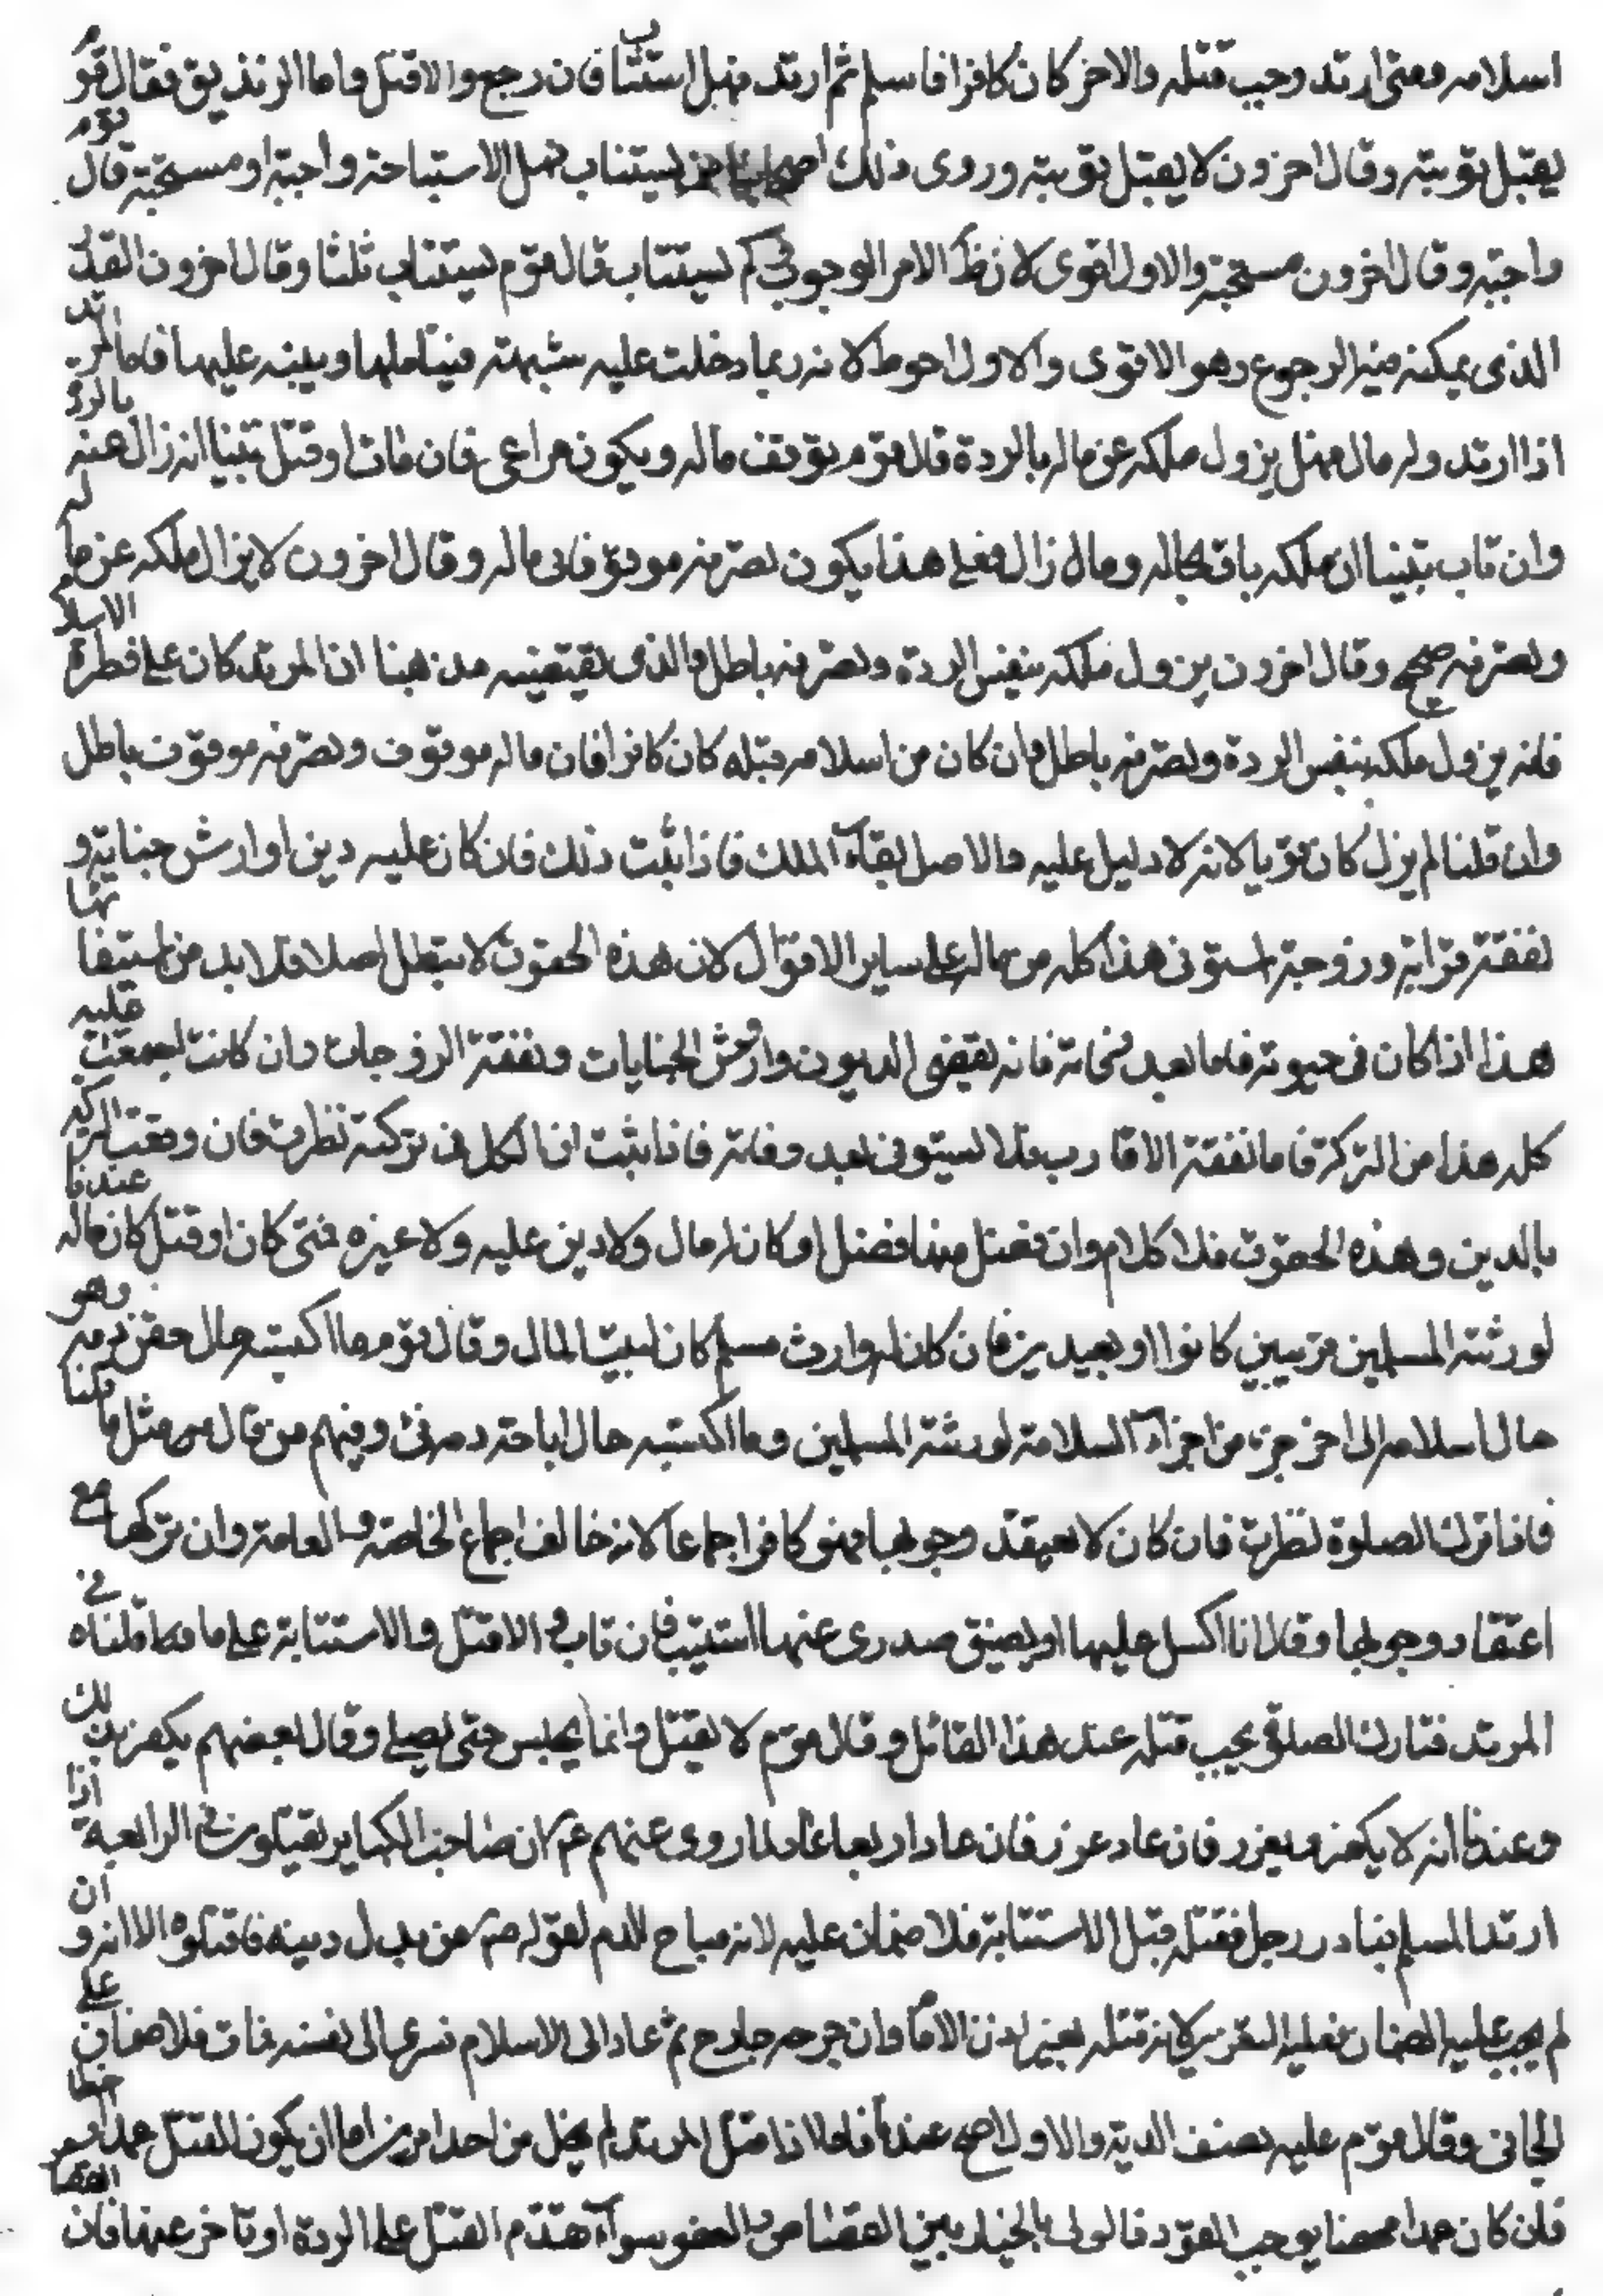 اسلامه فمتى ارتد وجب قتله والاخر كان كافرا فاسلم ثم ارتد فهل استتاب فان رجع والا قتل واما الزنديق فقال قوم
يقبل توبته وقال اخرون لا يقبل توبته وروى ذلك اصحابنا فمن يستتاب هل الاستتابة واجبة او مستحبة قال قوم
واجبة وقال اخرون مستحبة والاول اقوى لان ظ الامر الوجوب في كم يستتاب قال قوم يستتاب ثلثا وقال اخرون القدر
الذى يمكنه فيه الرجوع وهو الاقوى والاول احوط لانه ربما دخلت عليه شبهته فيتاملها وينبه عليها فاما المرتد
اذا ارتد وله مال فهل يزول ملكه عن ماله بالردة قال قوم يوقف ماله ويكون مراعى فان مات او قتل تبينا انه زال عنه بالردة
وان تاب تبينا ان ملكه باق بحاله وما زال فعلى هذا يكون تصرفه موقوفا في ماله وقال اخرون لا يزال ملكه عن ماله
وتصرفه صحيح وقال اخرون يزول ملكه بنفس الردة وتصرفه باطل والذى يقتضيه مذهبنا ان المرتد كان على فطرة الاسلام
فانه يزول ملكه بنفس الردة وتصرفه باطل وان كان من اسلامه قبله كان كافرا فان ماله موقوف وتصرفه موقوف باطل
وان قلنا لم يزل كان قويا لانه لا دليل عليه والاصل بقاء الملك فاذا ثبت ذلك فان كان عليه دين او ارش جناية و
نفقة قرابة وزوجة استوفى هذا كله من ماله على ساير الاقوال لان هذه الحقوق لا تبطل اصلا فلا بد من استيفائها
هذا اذا كان في حيوته فاما بعد مماته فانه يقضى الديون وارش الجنايات ونفقة الزوجات وان كانت اجتمعت عليه
كله هذا من التركة فاما نفقة الاقارب فلا يستوفى بعد وفاته فاذا ثبت ان الكل في تركته نظرت فان وفت التركة
بالدين وهذه الحقوق فلا كلام وان فضل منها فضل او كان له مال ولا دين عليه ولا غيره فمتى كان او قتل كان ماله عندنا
لورثته المسلمين قريبين كانوا او بعيدين فان كان له وارث مسلم كان لبيت المال وقال قوم ما اكتسبه حال حقن دمه وهو
حال اسلامه الى اخر جزء من اجزاء السلامة لورثته المسلمين وما اكتسبه حال اباحة دمه فئ وفيهم من قال مثل ما قلنا
فاذا ترك الصلوة نظرت فان كان لا يعتقد وجوبها فهو كافر اجماعا لانه خالف اجماع الخاصة والعامة وان تركها مع
اعتقاد وجوبها وقال انا اكسل عليها او يضيق صدرى عنها استتيب فان تاب والا قتل والاستتابة على ما قلناه في
المرتد فتارك الصلوة يجب قتله عند هذا القائل وقال قوم لا يقتل وانما يحبس حتى يصلى وقال بعضهم يكفر بذلك
وعندنا انه لا يكفر ويعزر فان عاد عزر فان عاد اربعا لما روى عنهم عم ان صاحب الكباير يقتلون في الرابعة اذا
ارتد المسلم فبادر رجل فقتله قبل الاستتابة فلا ضمان عليه لانه مباح الدم لقوله ص من بدل دينه فاقتلوه الا انه وان
لم يجب عليه الضمان فعليه التعزير لانه قتله بغير اذن الامام وان جرحه جارح ثم عاد الى الاسلام فسرى الى نفسه فمات فلا ضمان على
الجانى وقال قوم عليه نصف الدية والاول اصح عندنا فاما اذا قتل المرتد لم يخل من احد امرين اما ان يكون القتل عمدا او خطا
فان كان عمدا محضا يوجب القود فالولى بالخيار بين القصاص والعفو سواء تقدم القتل على الردة او تاخر عنها فان